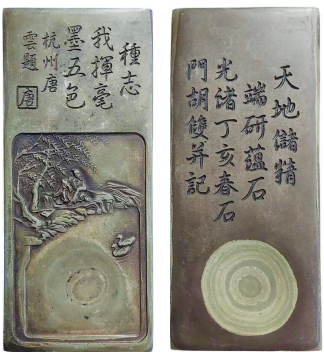 種志
我揮毫
墨五色
杭州唐
雲題
唐
天地儲精
端研蘊石
光緒丁亥春石
門胡雙并記